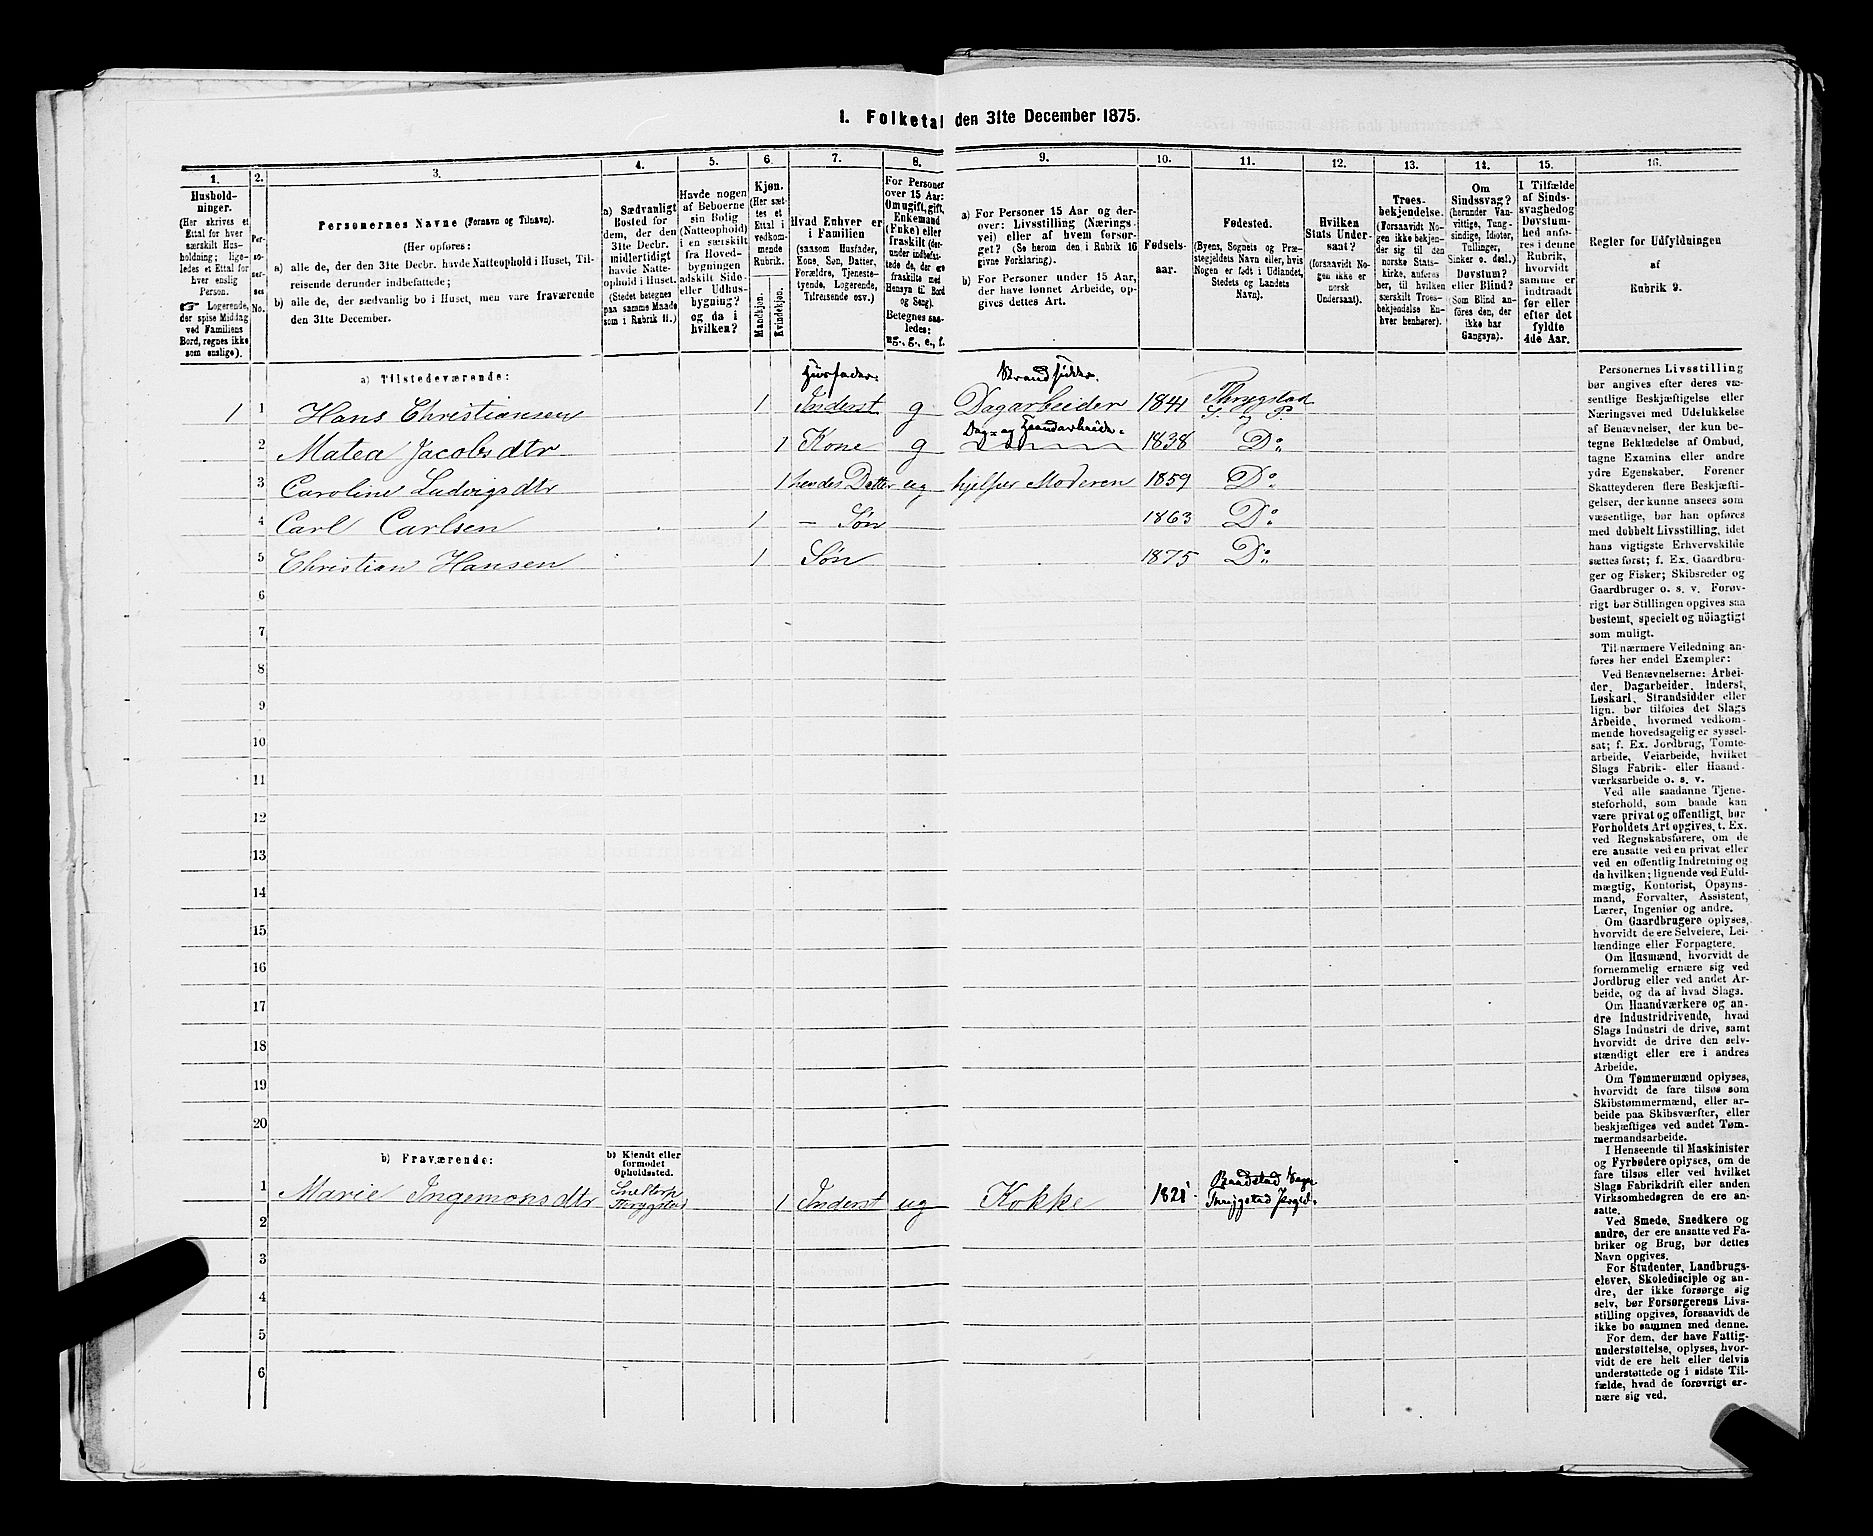 1. Folketal den 31te December 1875.
1.
2.
3.
4.
5.
6.
7.
8.
9.
10.
11.
12.
13.
14.
15.
16.
Hushold-
ninger.
(Her skrives et
Ettal for hver
særskilt Hus-
holdning; lige-
ledes et Ettal for
hver enslig
Person.
☞ Logerende,
der spise Middag
ved Familiens
Bord, regnes ikke
som enslige).
Per-
so-
ner-
nes
No.
Personernes Navne (Fornavn og Tilnavn).
(Her opføres:
a) alle de, der den 31te Decbr. havde Natteophold i Huset, Til-
reisende derunder indbefattede;
b) alle de, der sædvanlig bo i Huset, men vare fraværende
den 31te December.
a) Sædvanligt
Bosted for
dem, der den
31te Decbr.
midlertidigt
havde Natte-
ophold i Huset.
(Stedet betegnes
paa samme Maade
som i Rubrik 11.)
Havde nogen
af Beboerne
sin Bolig
(Natteophold)
i en særskilt
fra Hoved-
bygningen
adskilt Side-
eller Udhus-
bygning?
og da i
hvilken?
Kjøn.
(Her sæt-
tes et
Ettal i
vedkom-
mende
Rubrik.
Mandkjøn.
Kvindekjøn.
Hvad Enhver er
i Familien
(saasom Husfader,
Kone, Søn, Datter,
Forældre, Tjeneste-
tyende, Logerende,
Tilreisende osv.)
For Personer
over 15 Aar:
Om ugift, gift,
Enkemand
(Enke) eller
fraskilt (der-
under indbefat-
tede de, der ere
fraskilte med
Hensyn til Bord
og Seng).
Betegnes saa-
ledes:
ug., g., e., f.
a) For Personer 15 Aar og der-
over: Livsstilling (Nærings-
vei) eller af hvem forsør-
get? (Se herom den i Rubrik 16
givne Forklaring).
b) For Personer under 15 Aar,
der have lønnet Arbeide, op-
gives dettes Art.
Fødsels-
aar.
Fødested.
(Byens, Sognets og Præ-
stegjeldets Navn eller, hvis
Nogen er født i Udlandet,
Stedets og Landets
Navn).
Hvilken
Stats Under-
saat?
(forsaavidt No-
gen ikke er
norsk
Undersaat).
Troes-
bekjendelse.
(Forsaavidt No-
gen ikke bekjen-
der sig til den
norske Stats-
kirke, anføres
her, til hvilken
særskilt Troes-
bekjendelse En-
hver henhører).
Om
Sindssvag?
(herunder Van-
vittige, Tung-
sindige, Idioter,
Tullinger,
Sinker o. desl.)
Døvstum?
eller Blind?
(Som Blind an-
føres den, der
ikke har
Gangsyn).
I Tilfælde
af Sinds-
svaghed og
Døvstum-
hed anfø-
res i denne
Rubrik,
hvorvidt
samme er
indtraadt
før eller
efter det
fyldte
4de Aar.
Regler for Udfyldningen
af
Rubrik 9.
a) Tilstedeværende:
Husfader. Strandsidder.
1 1 Hans Christiansen 1 Inderst g Dagarbeider 1841 Thrygstad
S. og P.
Dag- og Haandarbeide
2 Matea Jacobsdtr 1 Kone g 1838 Do
3 Caroline Ludvigsdtr 1 hendes Datter ug hjelper Moderen 1859 Do
4 Carl Carlsen 1 – Søn 1863 Do
5 Christian Hansen 1 Søn 1875 Do
6
7
8
9
10
11
12
13
14
15
16
17
18
19
20
b) Fraværende:
b) Kjendt eller
formodet
Opholdssted.
1 Marie Ingemonsdtr Thrygstad 1 Inderst ug Kokke 1821
2
3
4
5
6
Personernes Livsstilling
bør angives efter deres væ-
sentlige Beskjæftigelse eller
Næringsvei med Udelukkelse
af Benævnelser, der kun be-
tegne Beklædelse af Ombud,
tagne Examina eller andre
ydre Egenskaber. Forener
Skatteyderen flere Beskjæfti-
gelser, der kunne ansees som
væsentlige, bør han opføres
med dobbelt Livsstilling, idet
hans vigtigste Erhvervskilde
sættes først; f. Ex. Gaardbru-
ger og Fisker; Skibsreder og
Gaardbruger o. s. v. Forøv-
rigt bør Stillingen opgives saa
bestemt, specielt og nöiagtigt
som muligt.
Til nærmere Veiledning an-
føres her endel Exempler:
Ved Benævnelserne: Arbei-
der, Dagarbeider, Inderst,
Løskarl, Strandsidder eller
lign. bør tilføies det Slags
Arbeide, hvormed vedkom-
mende hovedsagelig er syssel-
sat; f. Ex. Jordbrug, Tomte-
arbeide, Veiarbeide, hvilket
Slags Fabrik- eller Haand-
værksarbeide o. s. v.
Ved alle saadanne Tjene-
steforhold, som baade kan
være privat og offentligt, bør
Forholdets Art opgives, t. Ex.
ved Regnskabsførere, om de
ere ansatte ved en privat eller
ved en offentlig Indretning og
da hvilken; lignende ved Fuld-
mægtig, Kontorist, Opsyns-
mand, Forvalter, Assistent,
Lærer, Ingeniør og andre.
Om Gaardbrugere oplyses,
hvorvidt de ere Selveiere, Lei-
lændinge eller Forpagtere.
Om Husmænd, hvorvidt de
fornemmelig ernære sig ved
Jordbrug eller ved andet Ar-
beide, og da af hvad Slags.
Om Haandværkere og an-
dre Industridrivende, hvad
Slags Industri de drive, samt
hvorvidt de drive den selv-
stændigt eller ere i andres
Arbeide.
Om Tømmermænd oplyses,
hvorvidt de fare tilsøs som
Skibstømmermænd, eller ar-
beide paa Skibsværfter, eller
beskjæftiges ved andet Tøm-
mermandsarbeide.
I Henseende til Maskinister
og Fyrbødere oplyses, om de
fare tilsøs eller ved hvilket
Slags Fabrikdrift eller anden
Virksomhedsgren de ere an-
satte.
Ved Smede, Snedkere og
andre, der ere ansatte ved Fa-
briker og Brug, bør dettes
Navn opgives.
For Studenter, Landbrugs-
elever, Skoledisciple og an-
dre, der ikke forsørge sig
selv, bør Forsørgerens Livs-
stilling opgives, forsaavidt de
ikke bo sammen med denne.
For dem, der have Fattig-
understøttelse, oplyses, hvor-
vidt de ere helt eller delvis
understøttede og i sidste Til-
fælde, hvad de forøvrigt er-
nære sig ved.